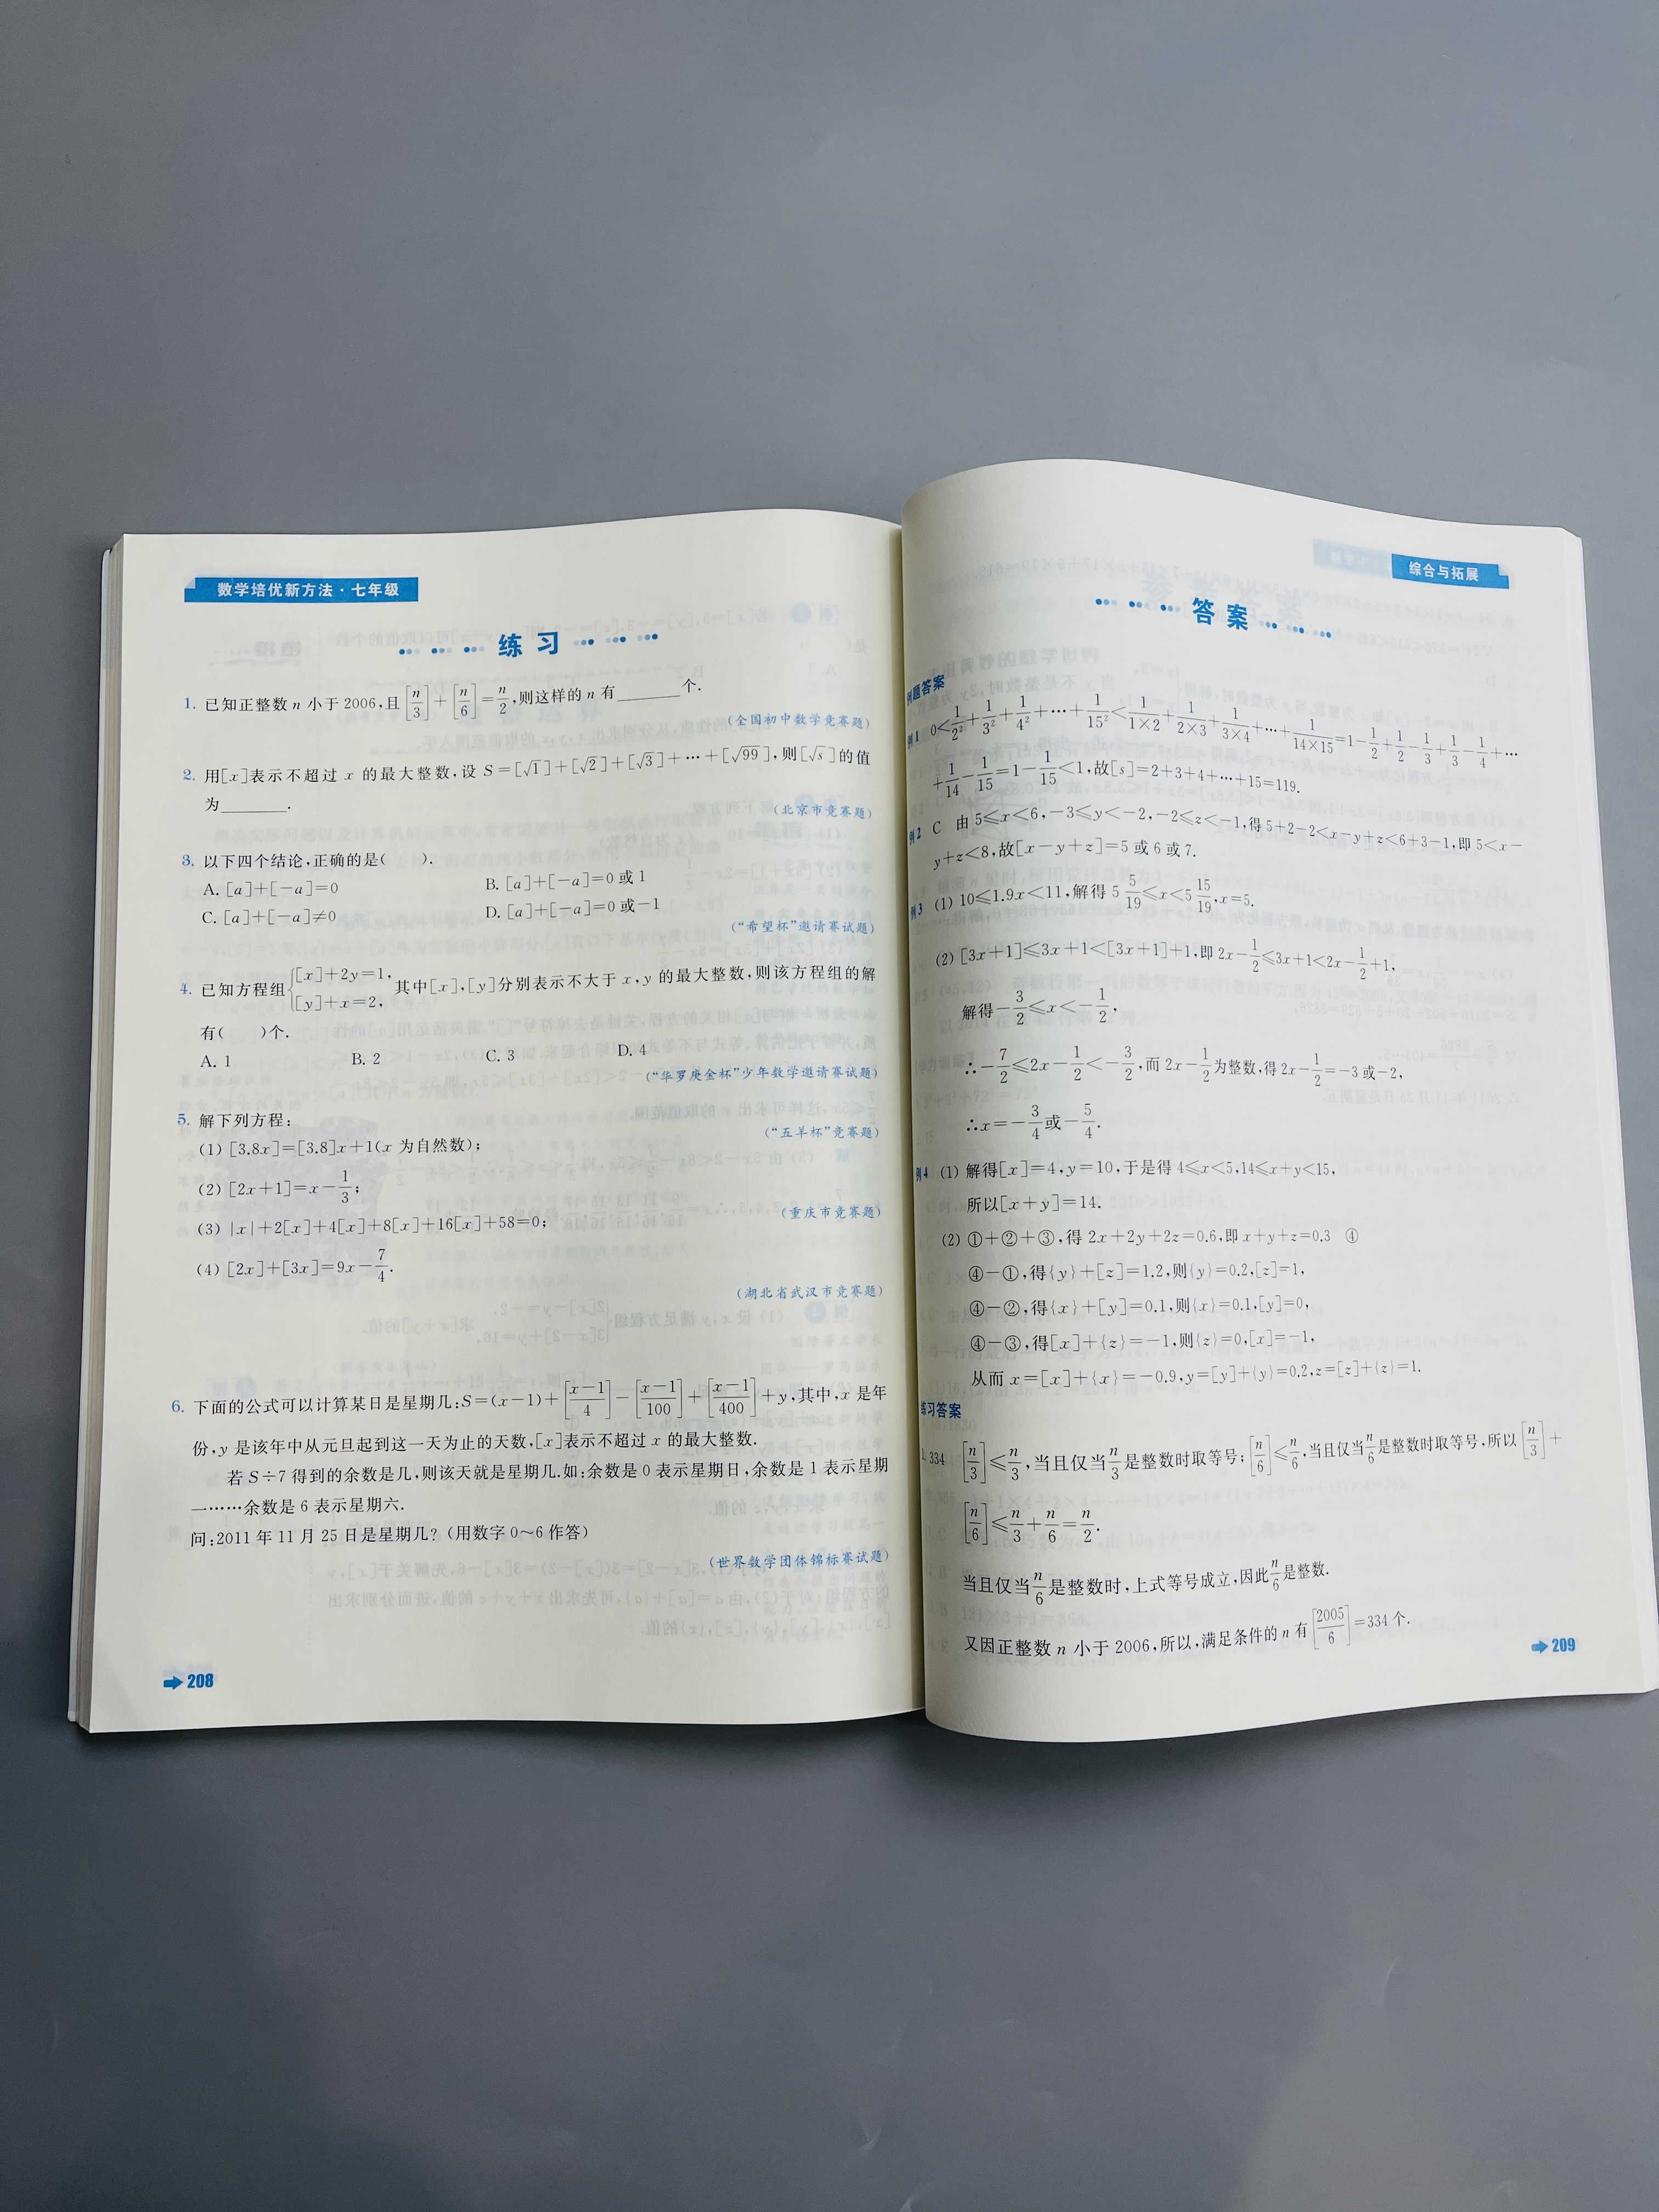 数学培优新方法·七年级
练习
1. 已知正整数 n 小于 2006,且[n/3]+[n/6]=n/2,则这样的 n 有________个.
(全国初中数学竞赛题)
2. 用[x]表示不超过 x 的最大整数,设 S=[√1]+[√2]+[√3]+…+[√99],则[√s]的值
为________.
(北京市竞赛题)
3. 以下四个结论,正确的是(  ).
A. [a]+[-a]=0 B. [a]+[-a]=0 或 1
C. [a]+[-a]≠0 D. [a]+[-a]=0 或-1
(“希望杯”邀请赛试题)
4. 已知方程组{[x]+2y=1, [y]+x=2, 其中[x],[y]分别表示不大于 x,y 的最大整数,则该方程组的解
有(  )个.
A. 1 B. 2 C. 3 D. 4
(“华罗庚金杯”少年数学邀请赛试题)
5. 解下列方程:
(1) [3.8x]=[3.8]x+1(x 为自然数);
(“五羊杯”竞赛题)
(2) [2x+1]=x-1/3;
(重庆市竞赛题)
(3) |x|+2[x]+4[x]+8[x]+16[x]+58=0;
(4) [2x]+[3x]=9x-7/4.
(湖北省武汉市竞赛题)
6. 下面的公式可以计算某日是星期几:S=(x-1)+[(x-1)/4]-[(x-1)/100]+[(x-1)/400]+y,其中,x 是年
份,y 是该年中从元旦起到这一天为止的天数,[x]表示不超过 x 的最大整数.
若 S÷7 得到的余数是几,则该天就是星期几.如:余数是 0 表示星期日,余数是 1 表示星期
一……余数是 6 表示星期六.
问:2011 年 11 月 25 日是星期几?(用数字 0~6 作答)
(世界数学团体锦标赛试题)
208
综合与拓展
答案
例题答案
例 1 0<1/2²+1/3²+1/4²+…+1/15²<1/(1×2)+1/(2×3)+1/(3×4)+…+1/(14×15)=1-1/2+1/2-1/3+1/3-1/4+…
+1/14-1/15=1-1/15<1,故[s]=2+3+4+…+15=119.
例 2 C 由 5≤x<6,-3≤y<-2,-2≤z<-1,得 5+2-2<x-y+z<6+3-1,即 5<x-
y+z<8,故[x-y+z]=5 或 6 或 7.
例 3 (1) 10≤1.9x<11,解得 5 5/19≤x<5 15/19,x=5.
(2) [3x+1]≤3x+1<[3x+1]+1,即 2x-1/2≤3x+1<2x-1/2+1,
解得-3/2≤x<-1/2,
∴-7/2≤2x-1/2<-3/2,而 2x-1/2为整数,得 2x-1/2=-3 或-2,
∴x=-3/4或-5/4.
例 4 (1) 解得[x]=4,y=10,于是得 4≤x<5,14≤x+y<15,
所以[x+y]=14.
(2) ①+②+③,得 2x+2y+2z=0.6,即 x+y+z=0.3 ④
④-①,得{y}+[z]=1.2,则{y}=0.2,[z]=1,
④-②,得{x}+[y]=0.1,则{x}=0.1,[y]=0,
④-③,得[x]+{z}=-1,则{z}=0,[x]=-1,
从而 x=[x]+{x}=-0.9,y=[y]+{y}=0.2,z=[z]+{z}=1.
练习答案
1. 334 [n/3]≤n/3,当且仅当n/3是整数时取等号;[n/6]≤n/6,当且仅当n/6是整数时取等号,所以[n/3]+
[n/6]≤n/3+n/6=n/2.
当且仅当n/6是整数时,上式等号成立,因此n/6是整数.
又因正整数 n 小于 2006,所以,满足条件的 n 有[2005/6]=334 个.
209